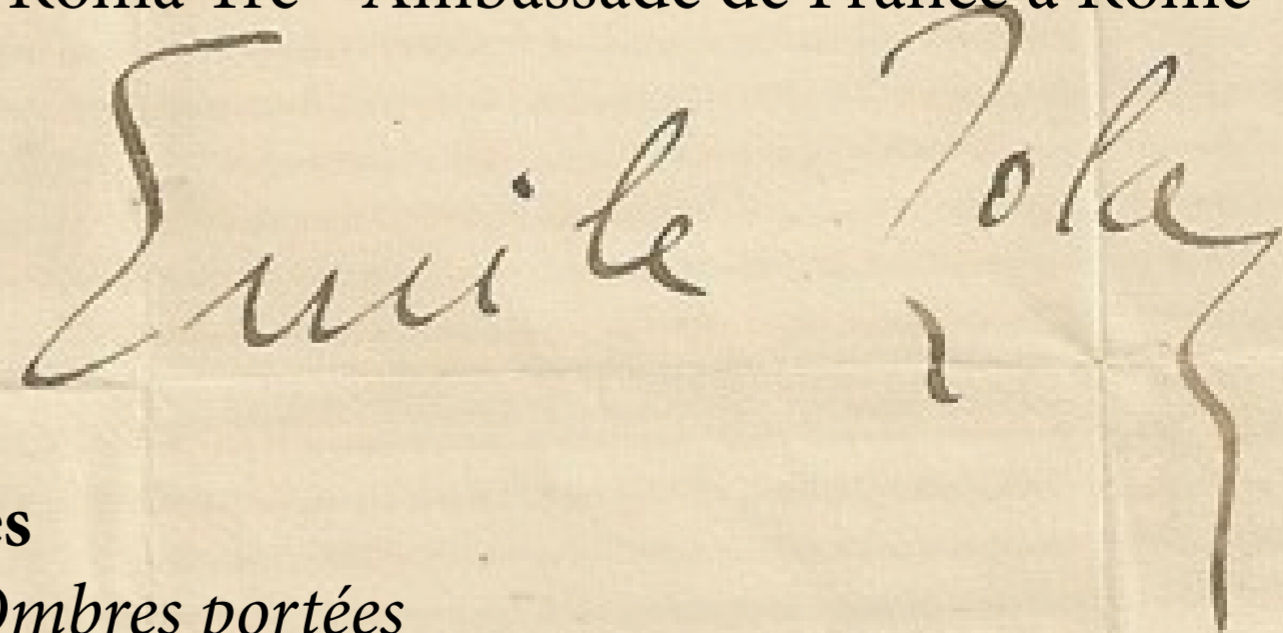 Roma Tre - Ambassade de France à Rome
Emile Zola
es
Ombres portées